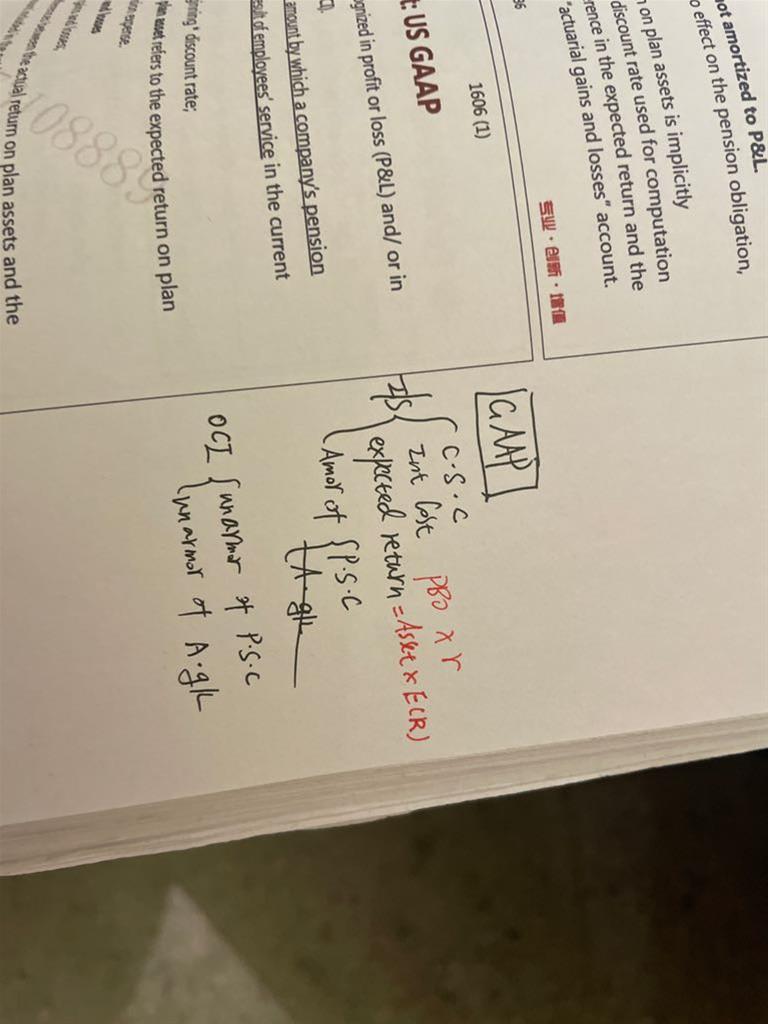 not amortized to P&L.
o effect on the pension obligation,
on plan assets is implicitly
discount rate used for computation
rence in the expected return and the
"actuarial gains and losses" account.
专业·创新·增值
96
1606 (1)
t: US GAAP
gnized in profit or loss (P&L) and/ or in
CI).
amount by which a company's pension
esult of employees' service in the current
ginning' discount rate;
plan asset refers to the expected return on plan
expense.
and losses;
the actual return on plan assets and the
108889
GAAP
I/S { C·S·C
Int Cost PBO × r
expected return = Asset × E(R)
Amor of { P·S·C
A·g/L
OCI { unamor of P·S·C
unamor of A·g/L